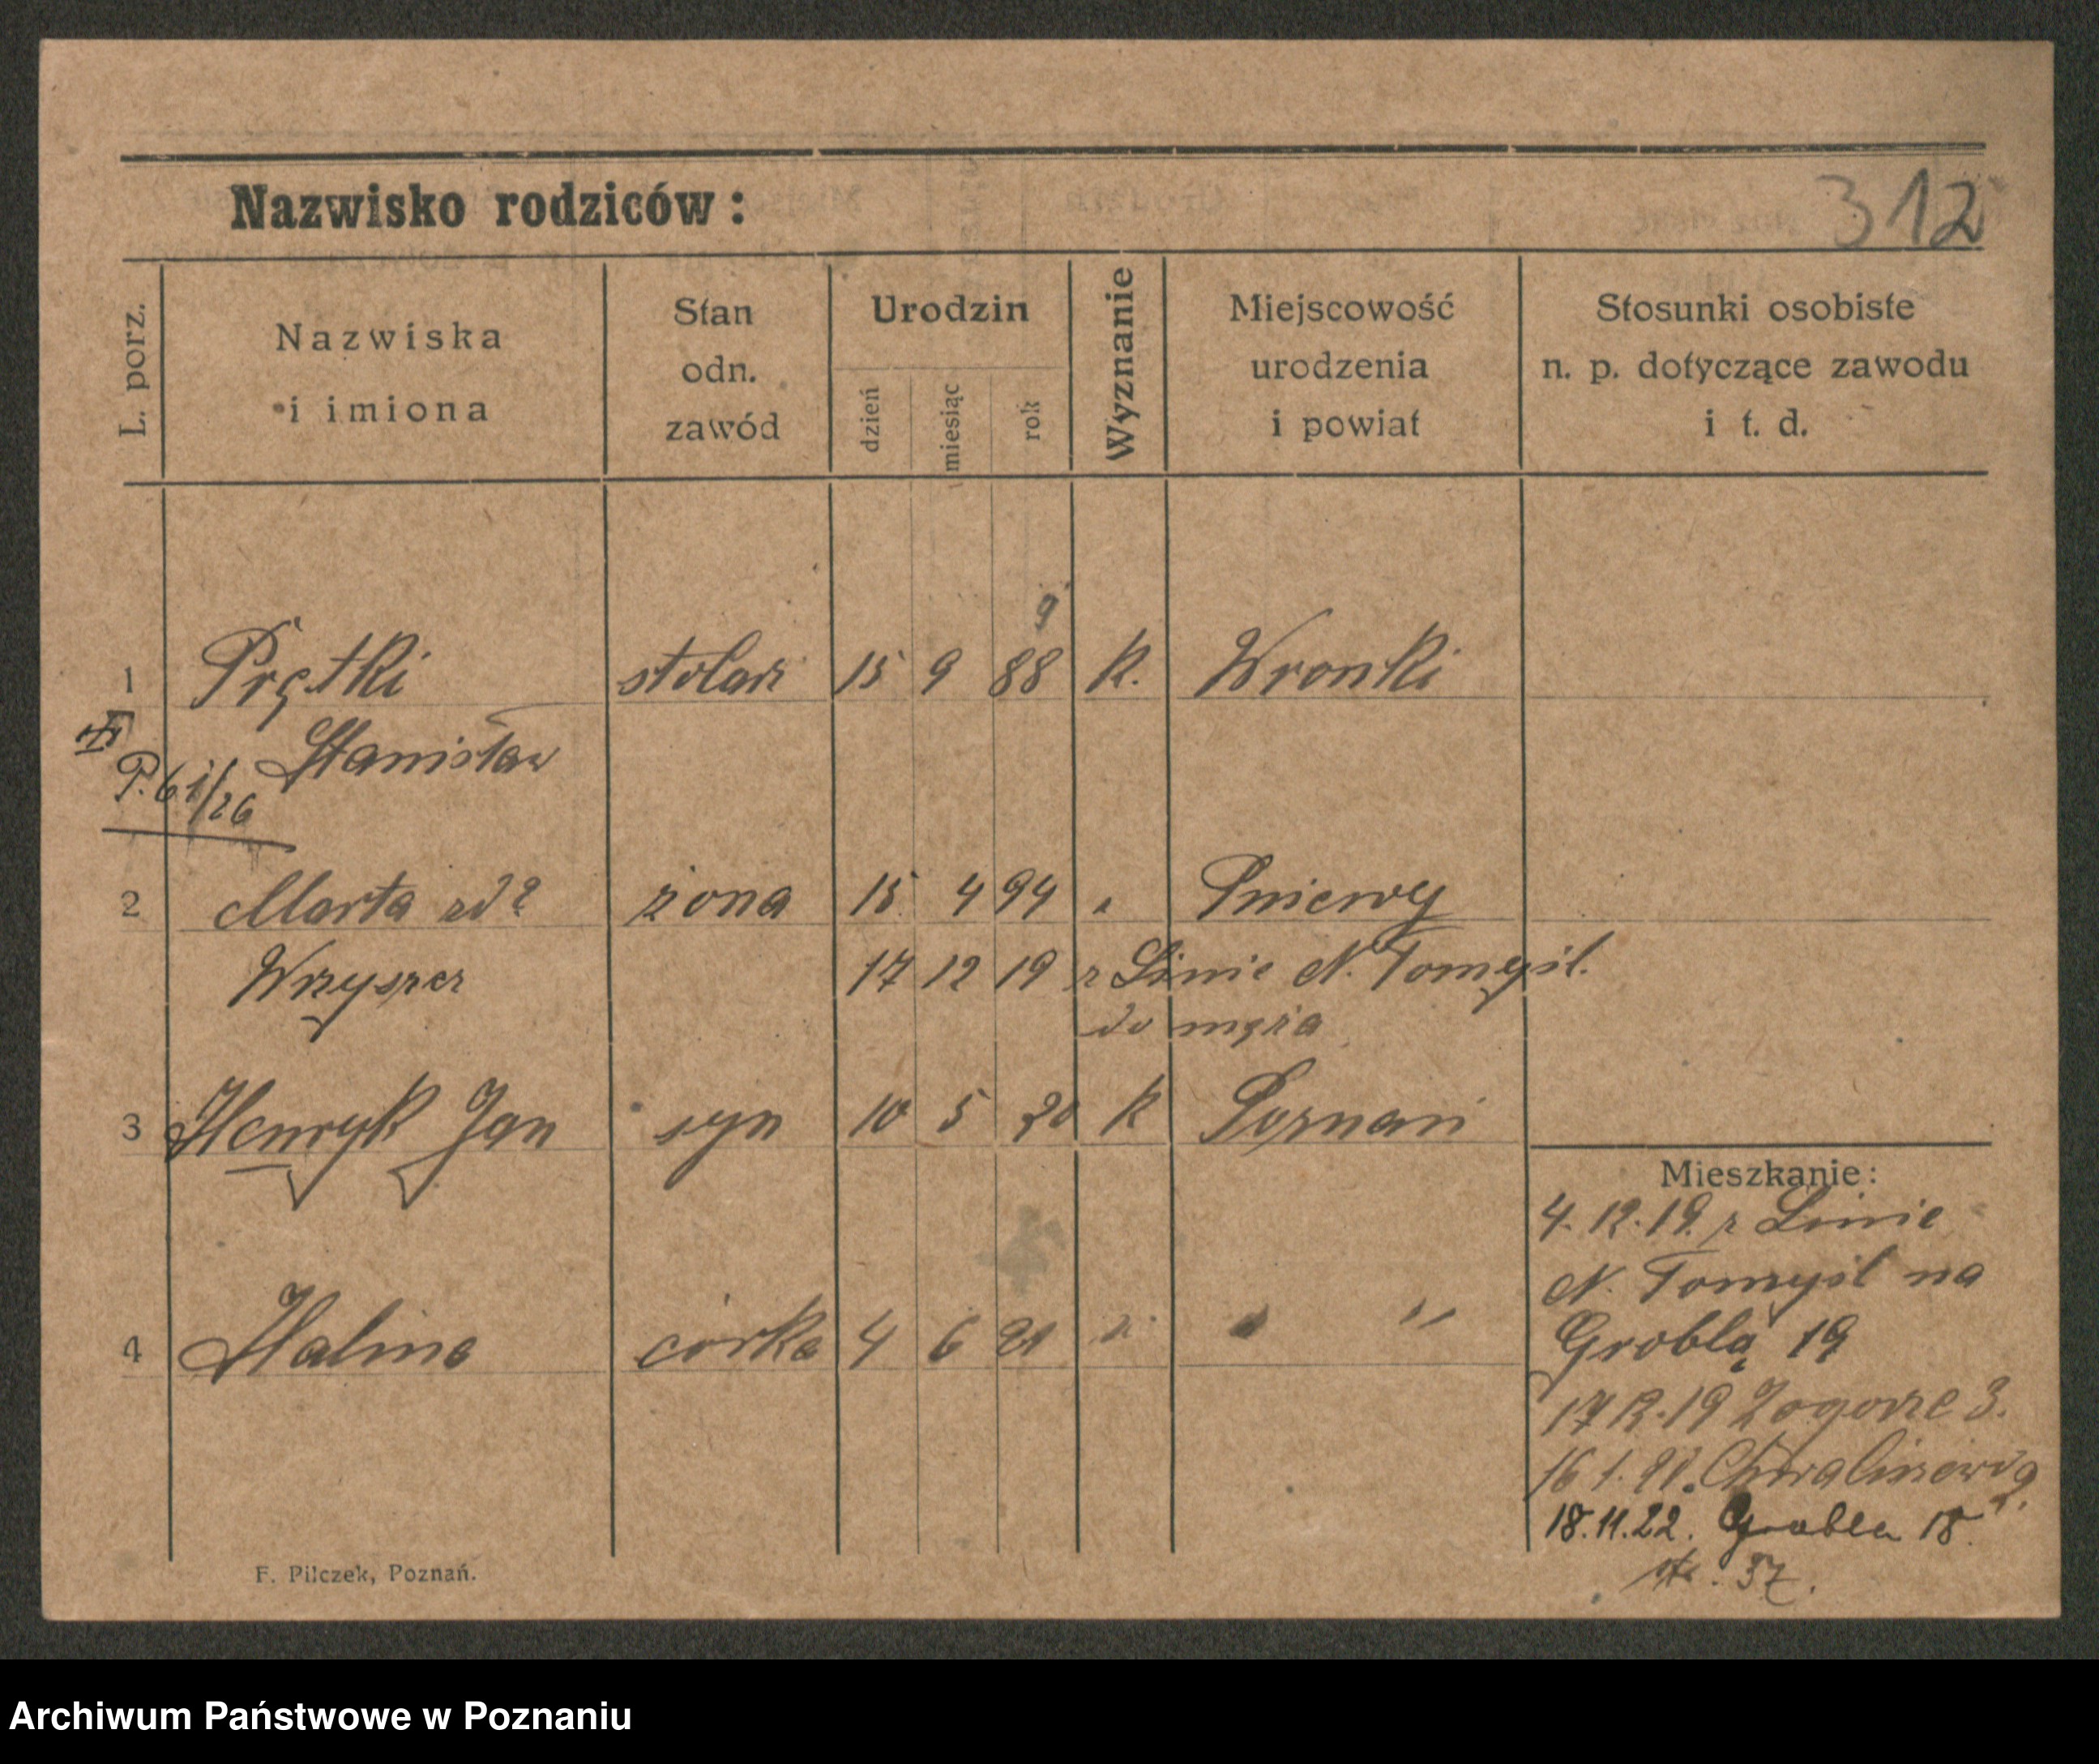 Nazwisko rodziców:
312
L. porz.
Nazwiska
i imiona
Stan
odn.
zawód
Urodzin
dzień
miesiąc
rok
Wyznanie
Miejscowość
urodzenia
i powiat
Stosunki osobiste
n. p. dotyczące zawodu
i t. d.
9
1 Prętki stolarz 15 9 88 k. Wronki
Stanisław
P. 61/26
2 Marta żona 15 4 94 " Pniewy
17 12 19 z Linie N. Tomyśl.
do męża
3 Henryk Jan syn 10 5 20 k Poznań
4 Halina córka 4 6 21 " " "
Mieszkanie:
4. 12. 19. z Linie
N. Tomyśl na
Groblą 19
17 12. 19 Zagórze 3.
16 1. Chwaliszewo
18. 11. 22. Grobla 18.
37.
F. Pilczek, Poznań.
Archiwum Państwowe w Poznaniu